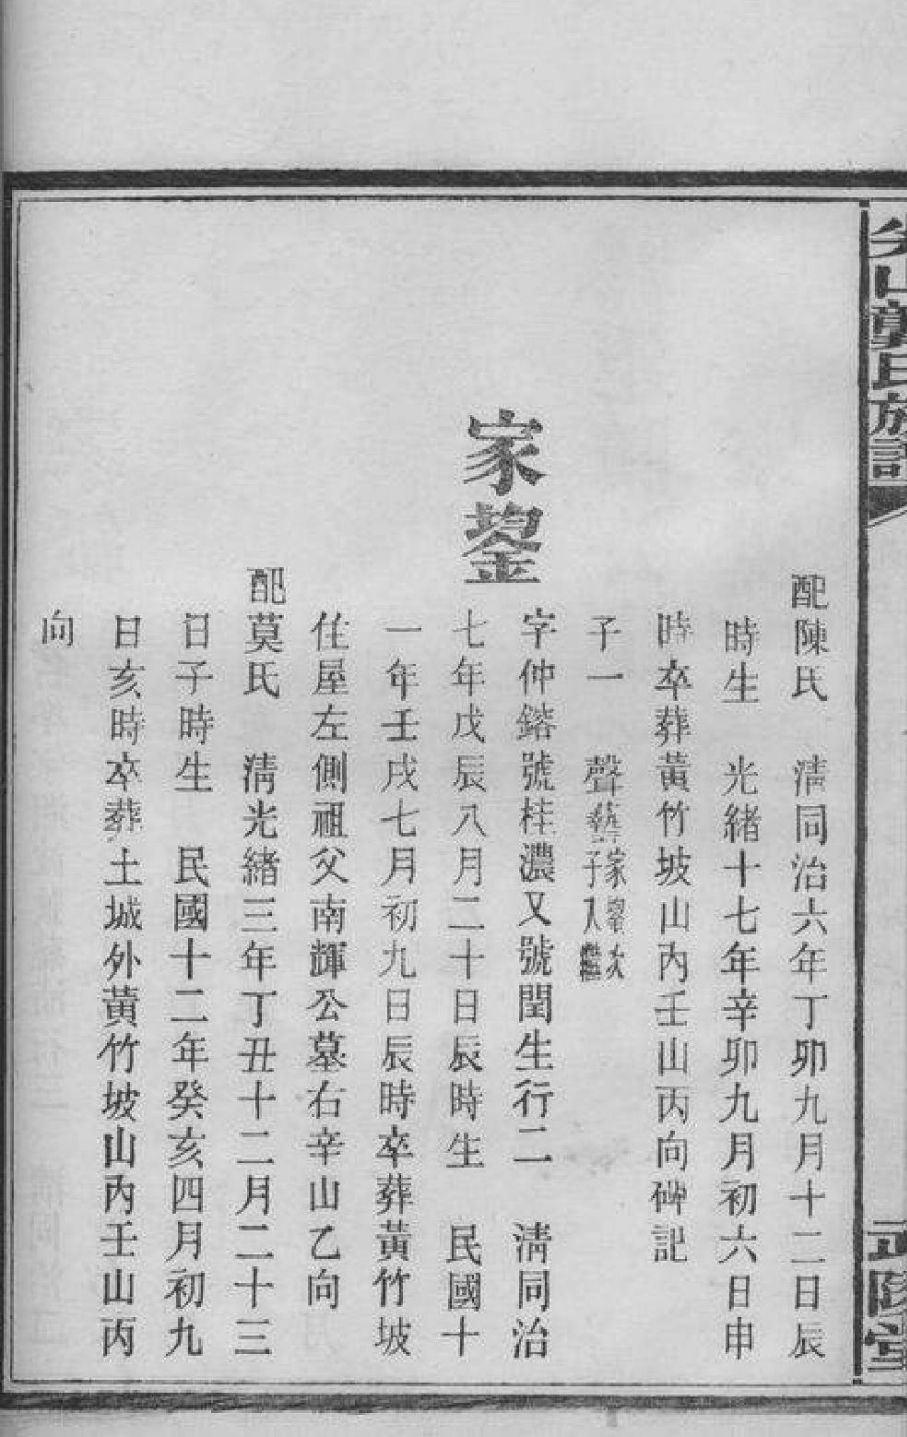 尖山龔氏族譜
配陳氏　清同治六年丁卯九月十二日辰
時生　光緒十七年辛卯九月初六日申
時卒葬黃竹坡山內壬山丙向碑記
子一　聲藝家鋆次子入繼
家鋆
字仲鎔號桂濃又號閏生行二　清同治
七年戊辰八月二十日辰時生　民國十
一年壬戌七月初九日辰時卒葬黃竹坡
住屋左側祖父南輝公墓右辛山乙向
配莫氏　清光緒三年丁丑十二月二十三
日子時生　民國十二年癸亥四月初九
日亥時卒葬土城外黃竹坡山內壬山丙
向
武陵堂